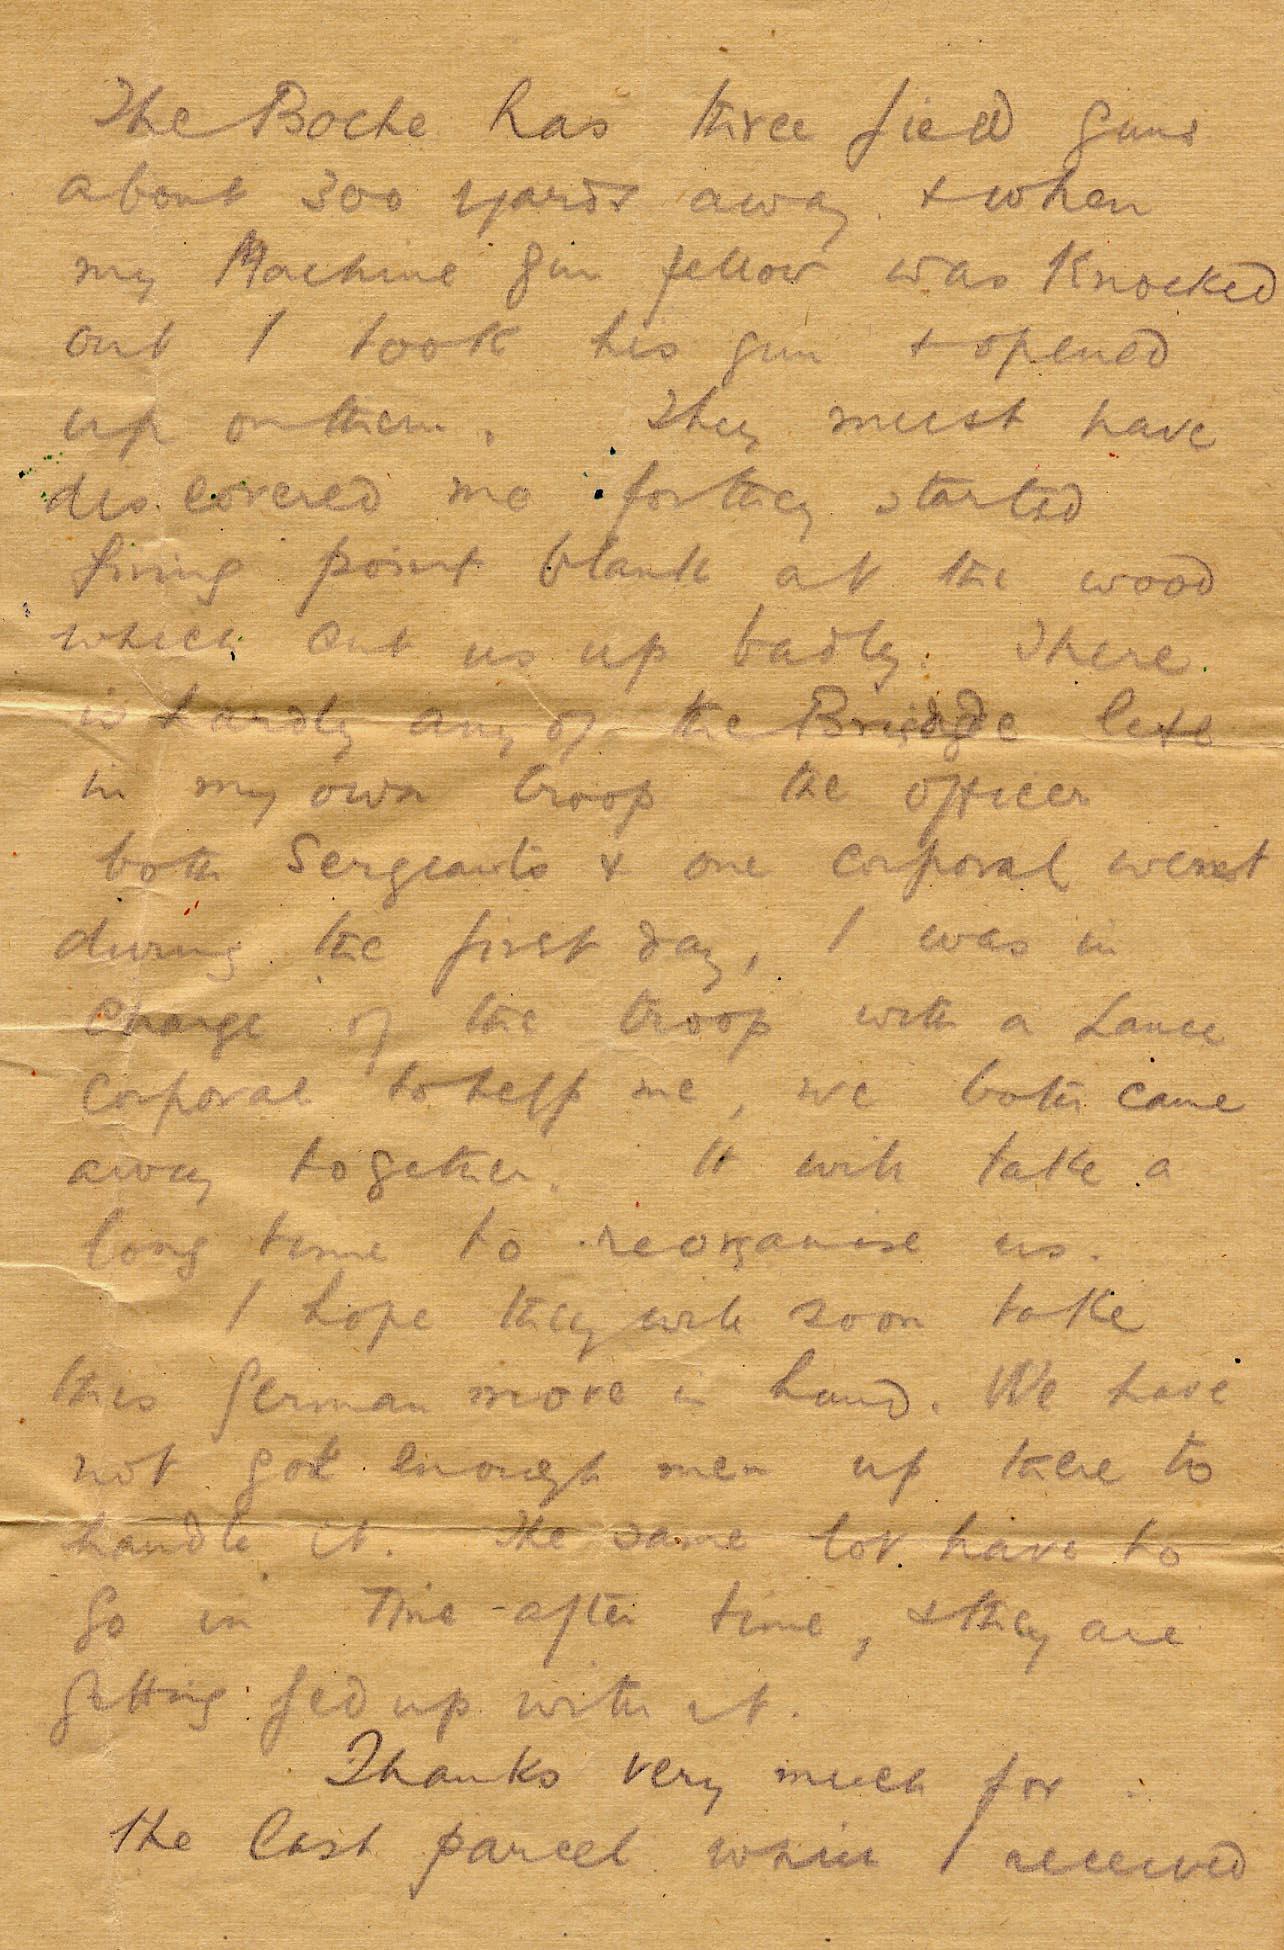 The Boche has three field guns
about 300 yards away. + when
my Machine gun fellow was Knocked
out I took his gun + opened
up on them. They must have
discovered me for they started
firing point blank at the wood
which cut us up badly. There
is hardly any of the left
in my own troop the officer
both Sergeants + one corporal went
during the first day, I was in
Charge of the troop with a Lance
Corporal to help me, we both came
away together. It will take a
long time to reorganise us.
I hope they will soon take
this German move in hand. We have
not got enough men up there to
handle it. The same lot have to
go in Time after time, + they are
getting fed up with it.
Thanks very much for
the last parcel which I received